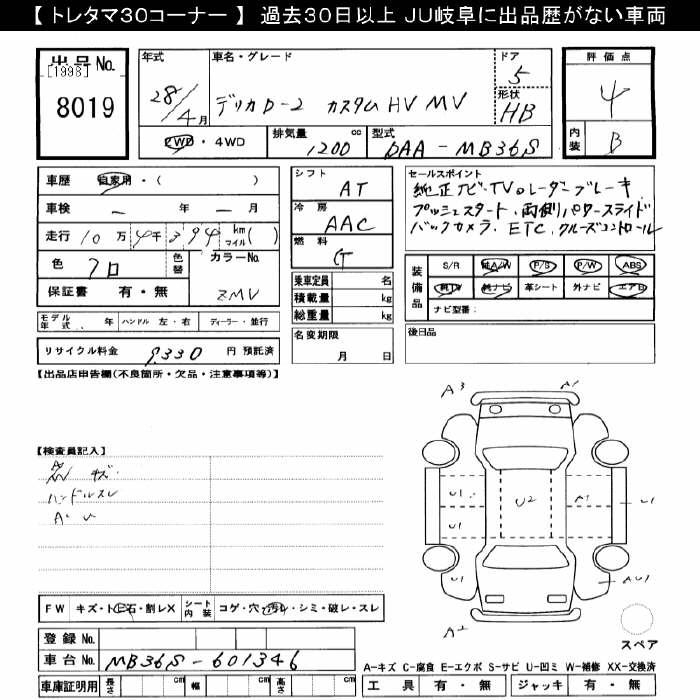 【トレタマ30コーナー】 過去30日以上 JU岐阜に出品歴がない車両
出品No. [1998] 8019
年式 28/4月
車名・グレード デリカD-2 カスタムHV MV
ドア 5
形状 HB
2WD・4WD 排気量 1200 cc 型式 DAA-MB36S
評価点 4
内装 B
車歴 自家用・( )
車検 ー 年 ー 月
走行 10万4千394 km マイル( )
色 クロ 色替 カラーNo. ZMV
保証書 有・無
モデル年式 . 年 ハンドル 左・右 ディーラー・並行
リサイクル料金 9330 円 預託済
シフト AT
冷房 AAC
燃料 G
乗車定員 名
積載量 kg
総重量 kg
名変期限 月 日
セールスポイント
純正ナビ・TV レーダーブレーキ
プッシュスタート、両側パワースライド
バックカメラ、ETC、クルーズコントロール
装備品 S/R 純A/W P/S P/W ABS
純TV 純ナビ 革シート 外ナビ エアB
ナビ型番:
後日品
【出品店申告欄(不良箇所・欠品・注意事項等)】
【検査員記入】
キズ.
ハンドルスレ
A・U
A3 A1
U1 U2 A1 U1
U1
U1 AU1
A2
スペア
FW キズ・ト石・割レX シート内装 コゲ・穴・汚レ・シミ・破レ・スレ
登録No.
車台No. MB36S-601346
車庫証明用 長さ cm 幅 cm 高さ cm
A-キズ C-腐食 E-エクボ S-サビ U-凹ミ W-補修 XX-交換済
工具 有・無 ジャッキ 有・無